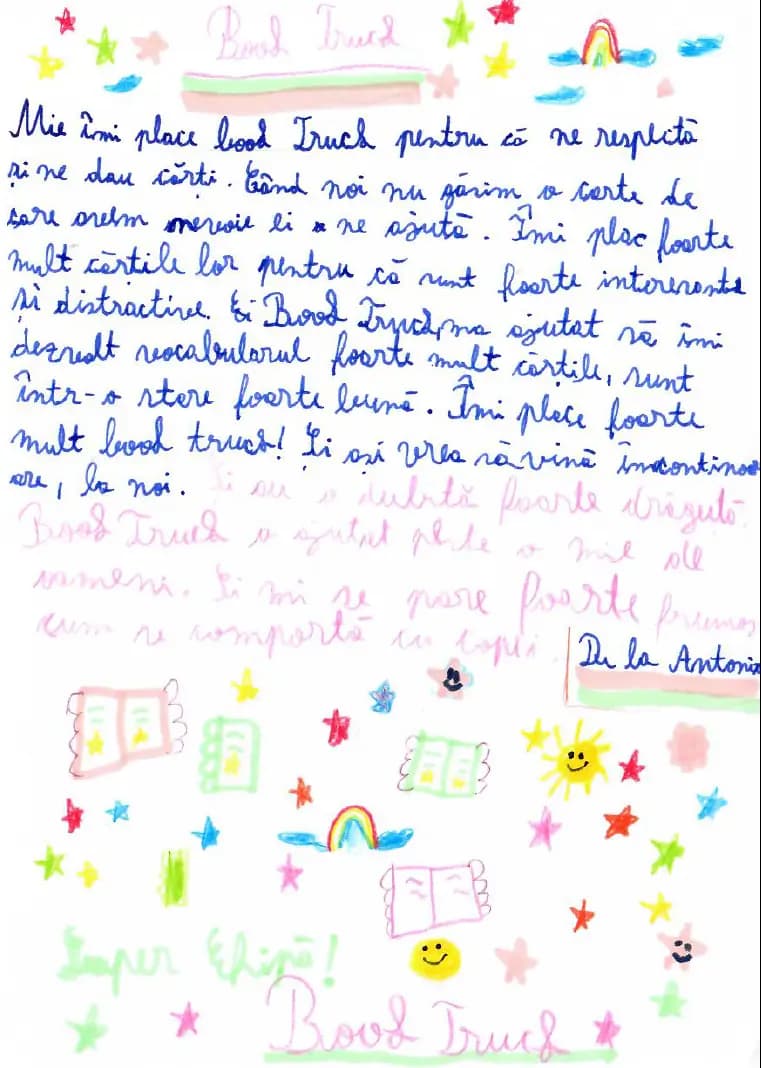 Bood Truck
Mie îmi place bood Truck pentru că ne respectă
și ne dau cărți. Când noi nu găsim o carte de
care avem nevoie ei ne ajută. Îmi plac foarte
mult cărțile lor pentru că sunt foarte interesante
și distractive. Ei Bood Truck, ma ajutat să îmi
dezvolt vocabularul foarte mult cărțile, sunt
într-o stare foarte bună. Îmi place foarte
mult bood truck! Și ași vrea să vină încontinoo
are, la noi. Ei au o dubită foarte drăguță.
Bood Truck a ajutat peste o mie de
oameni. Și mi se pare foarte frumos
cum se comportă cu copii.
De la Antonia
Super Ehipă!
Bood Truck